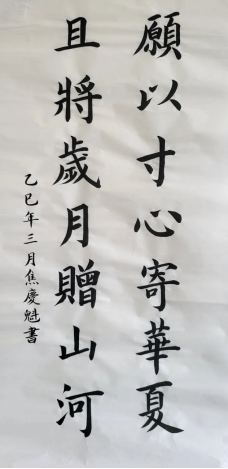 願以寸心寄華夏
且將歲月贈山河
乙巳年三月焦慶魁書